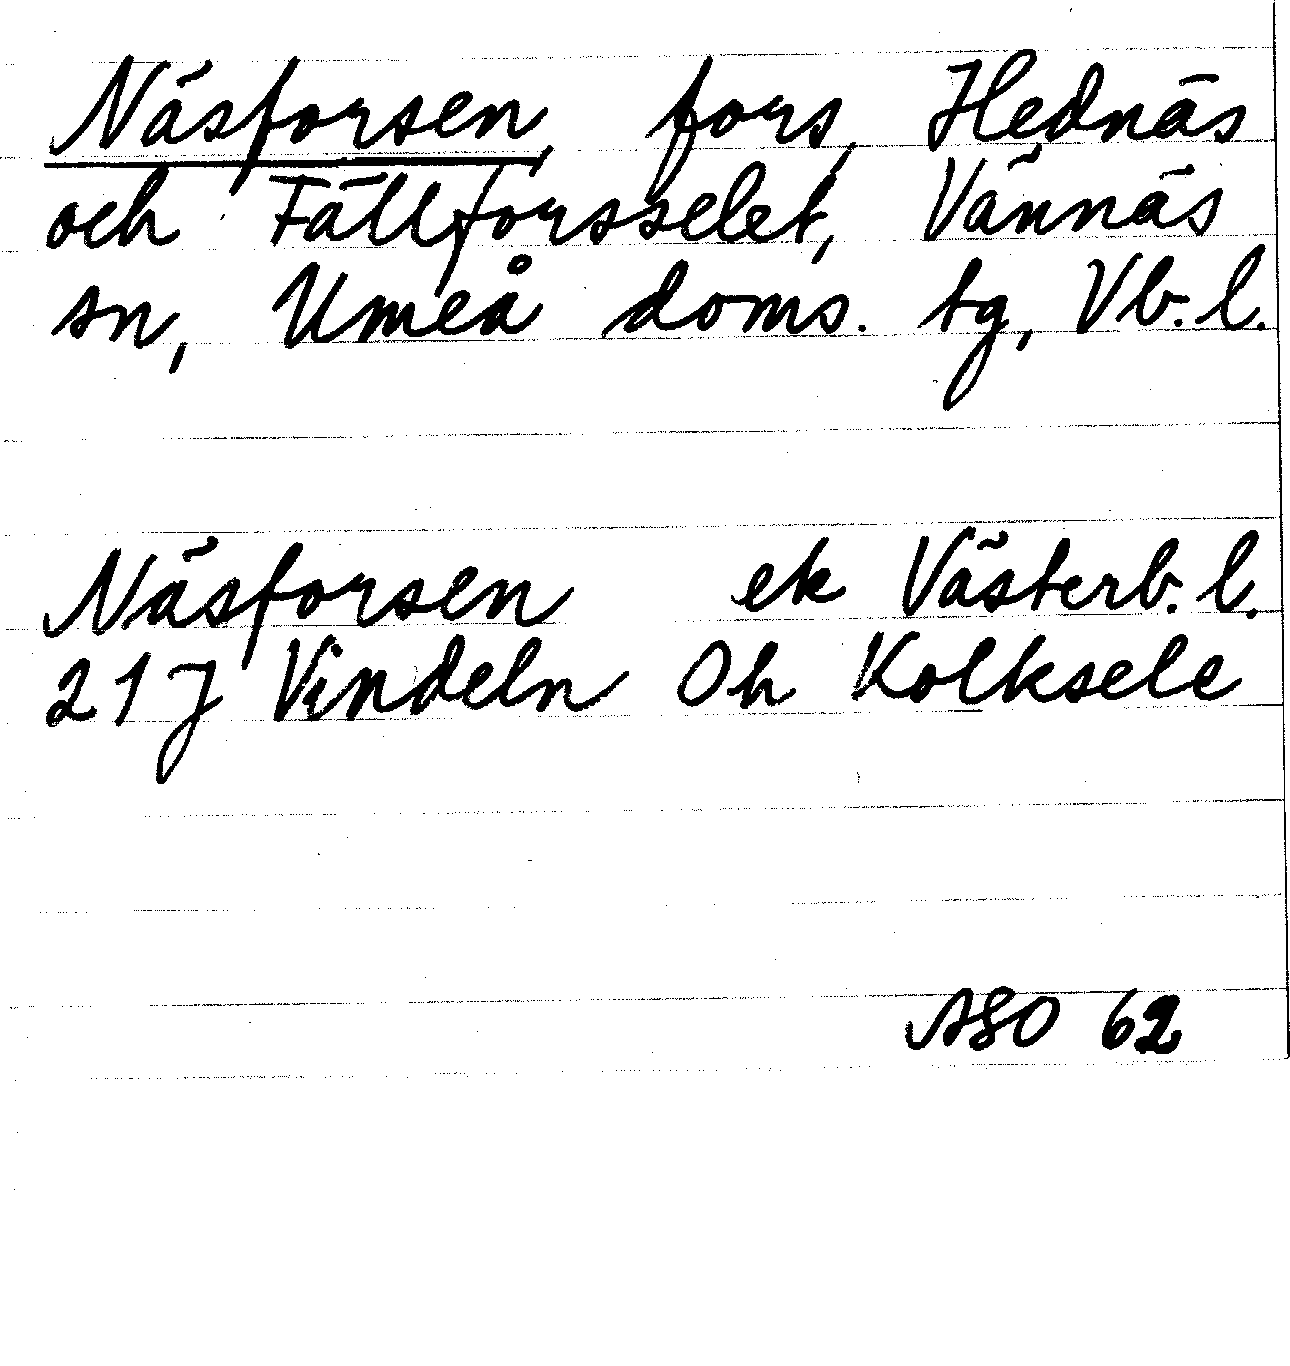 Näsforsen, fors, Hednäs
och Fällforsselet, Vännäs
sn, Umeå doms. tg, Vb. l.
Näsforsen ek Västerb. l.
21J Vindeln Oh Kolksele
ASO 62